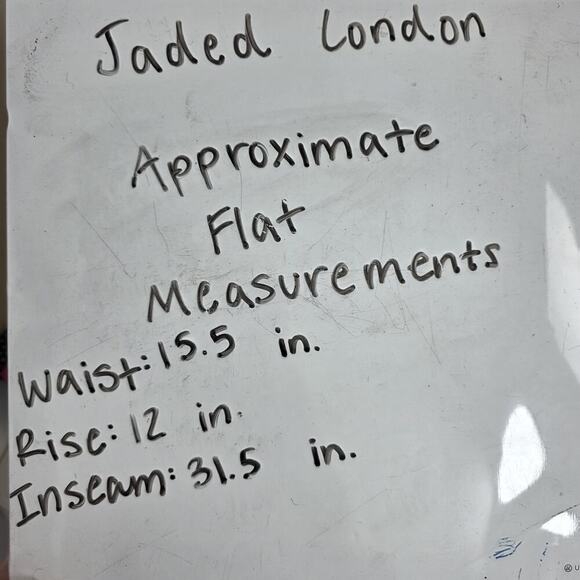 Jaded London
Approximate
Flat
Measurements
Waist: 15.5 in.
Rise: 12 in.
Inseam: 31.5 in.